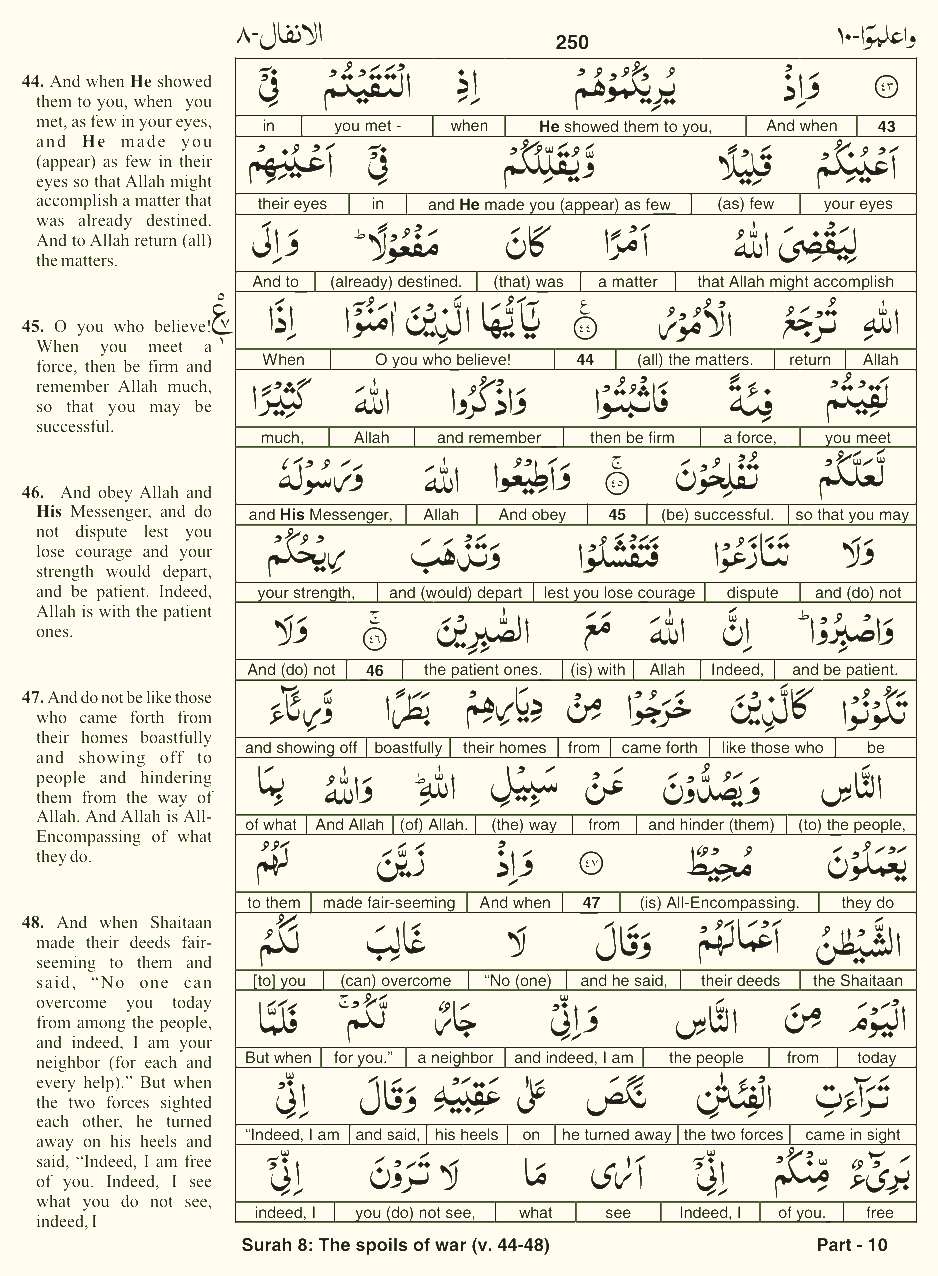 الانفال-٨ 250 واعلموا-١٠
44. And when He showed
them to you, when you
met, as few in your eyes,
and He made you
(appear) as few in their
eyes so that Allah might
accomplish a matter that
was already destined.
And to Allah return (all)
the matters.
45. O you who believe!
When you meet a
force, then be firm and
remember Allah much,
so that you may be
successful.
46. And obey Allah and
His Messenger, and do
not dispute lest you
lose courage and your
strength would depart,
and be patient. Indeed,
Allah is with the patient
ones.
47. And do not be like those
who came forth from
their homes boastfully
and showing off to
people and hindering
them from the way of
Allah. And Allah is All-
Encompassing of what
they do.
48. And when Shaitaan
made their deeds fair-
seeming to them and
said, “No one can
overcome you today
from among the people,
and indeed, I am your
neighbor (for each and
every help).” But when
the two forces sighted
each other, he turned
away on his heels and
said, “Indeed, I am free
of you. Indeed, I see
what you do not see,
indeed, I
٤٣ وَاِذْ يُرِيْكُمُوْهُمْ اِذِ الْتَقَيْتُمْ فِيْٓ
in | you met - | when | He showed them to you, | And when | 43
اَعْيُنِكُمْ قَلِيْلًا وَّيُقَلِّلُكُمْ فِيْٓ اَعْيُنِهِمْ
their eyes | in | and He made you (appear) as few | (as) few | your eyes
لِيَقْضِيَ اللّٰهُ اَمْرًا كَانَ مَفْعُوْلًا ؕ وَاِلَى
And to | (already) destined. | (that) was | a matter | that Allah might accomplish
اللّٰهِ تُرْجَعُ الْاُمُوْرُ ٤٤ ع يٰٓاَيُّهَا الَّذِيْنَ اٰمَنُوْٓا اِذَا
When | O you who believe! | 44 | (all) the matters. | return | Allah
٥ ع ٧ ١
لَقِيْتُمْ فِئَةً فَاثْبُتُوْا وَاذْكُرُوا اللّٰهَ كَثِيْرًا
much, | Allah | and remember | then be firm | a force, | you meet
لَّعَلَّكُمْ تُفْلِحُوْنَ ٤٥ ج وَاَطِيْعُوا اللّٰهَ وَرَسُوْلَهٗ
and His Messenger, | Allah | And obey | 45 | (be) successful. | so that you may
وَلَا تَنَازَعُوْا فَتَفْشَلُوْا وَتَذْهَبَ رِيْحُكُمْ
your strength, | and (would) depart | lest you lose courage | dispute | and (do) not
وَاصْبِرُوْا ؕ اِنَّ اللّٰهَ مَعَ الصّٰبِرِيْنَ ٤٦ ج وَلَا
And (do) not | 46 | the patient ones. | (is) with | Allah | Indeed, | and be patient.
تَكُوْنُوْا كَالَّذِيْنَ خَرَجُوْا مِنْ دِيَارِهِمْ بَطَرًا وَّرِئَآءَ
and showing off | boastfully | their homes | from | came forth | like those who | be
النَّاسِ وَيَصُدُّوْنَ عَنْ سَبِيْلِ اللّٰهِ ؕ وَاللّٰهُ بِمَا
of what | And Allah | (of) Allah. | (the) way | from | and hinder (them) | (to) the people,
يَعْمَلُوْنَ مُحِيْطٌ ٤٧ وَاِذْ زَيَّنَ لَهُمُ
to them | made fair-seeming | And when | 47 | (is) All-Encompassing. | they do
الشَّيْطٰنُ اَعْمَالَهُمْ وَقَالَ لَا غَالِبَ لَكُمُ
[to] you | (can) overcome | “No (one) | and he said, | their deeds | the Shaitaan
الْيَوْمَ مِنَ النَّاسِ وَاِنِّيْ جَارٌ لَّكُمْ ۚ فَلَمَّا
But when | for you.” | a neighbor | and indeed, I am | the people | from | today
تَرَآءَتِ الْفِئَتٰنِ نَكَصَ عَلٰى عَقِبَيْهِ وَقَالَ اِنِّيْ
“Indeed, I am | and said, | his heels | on | he turned away | the two forces | came in sight
بَرِيْٓءٌ مِّنْكُمْ اِنِّيْٓ اَرٰى مَا لَا تَرَوْنَ اِنِّيْٓ
indeed, I | you (do) not see, | what | see | Indeed, I | of you. | free
Surah 8: The spoils of war (v. 44-48) Part - 10